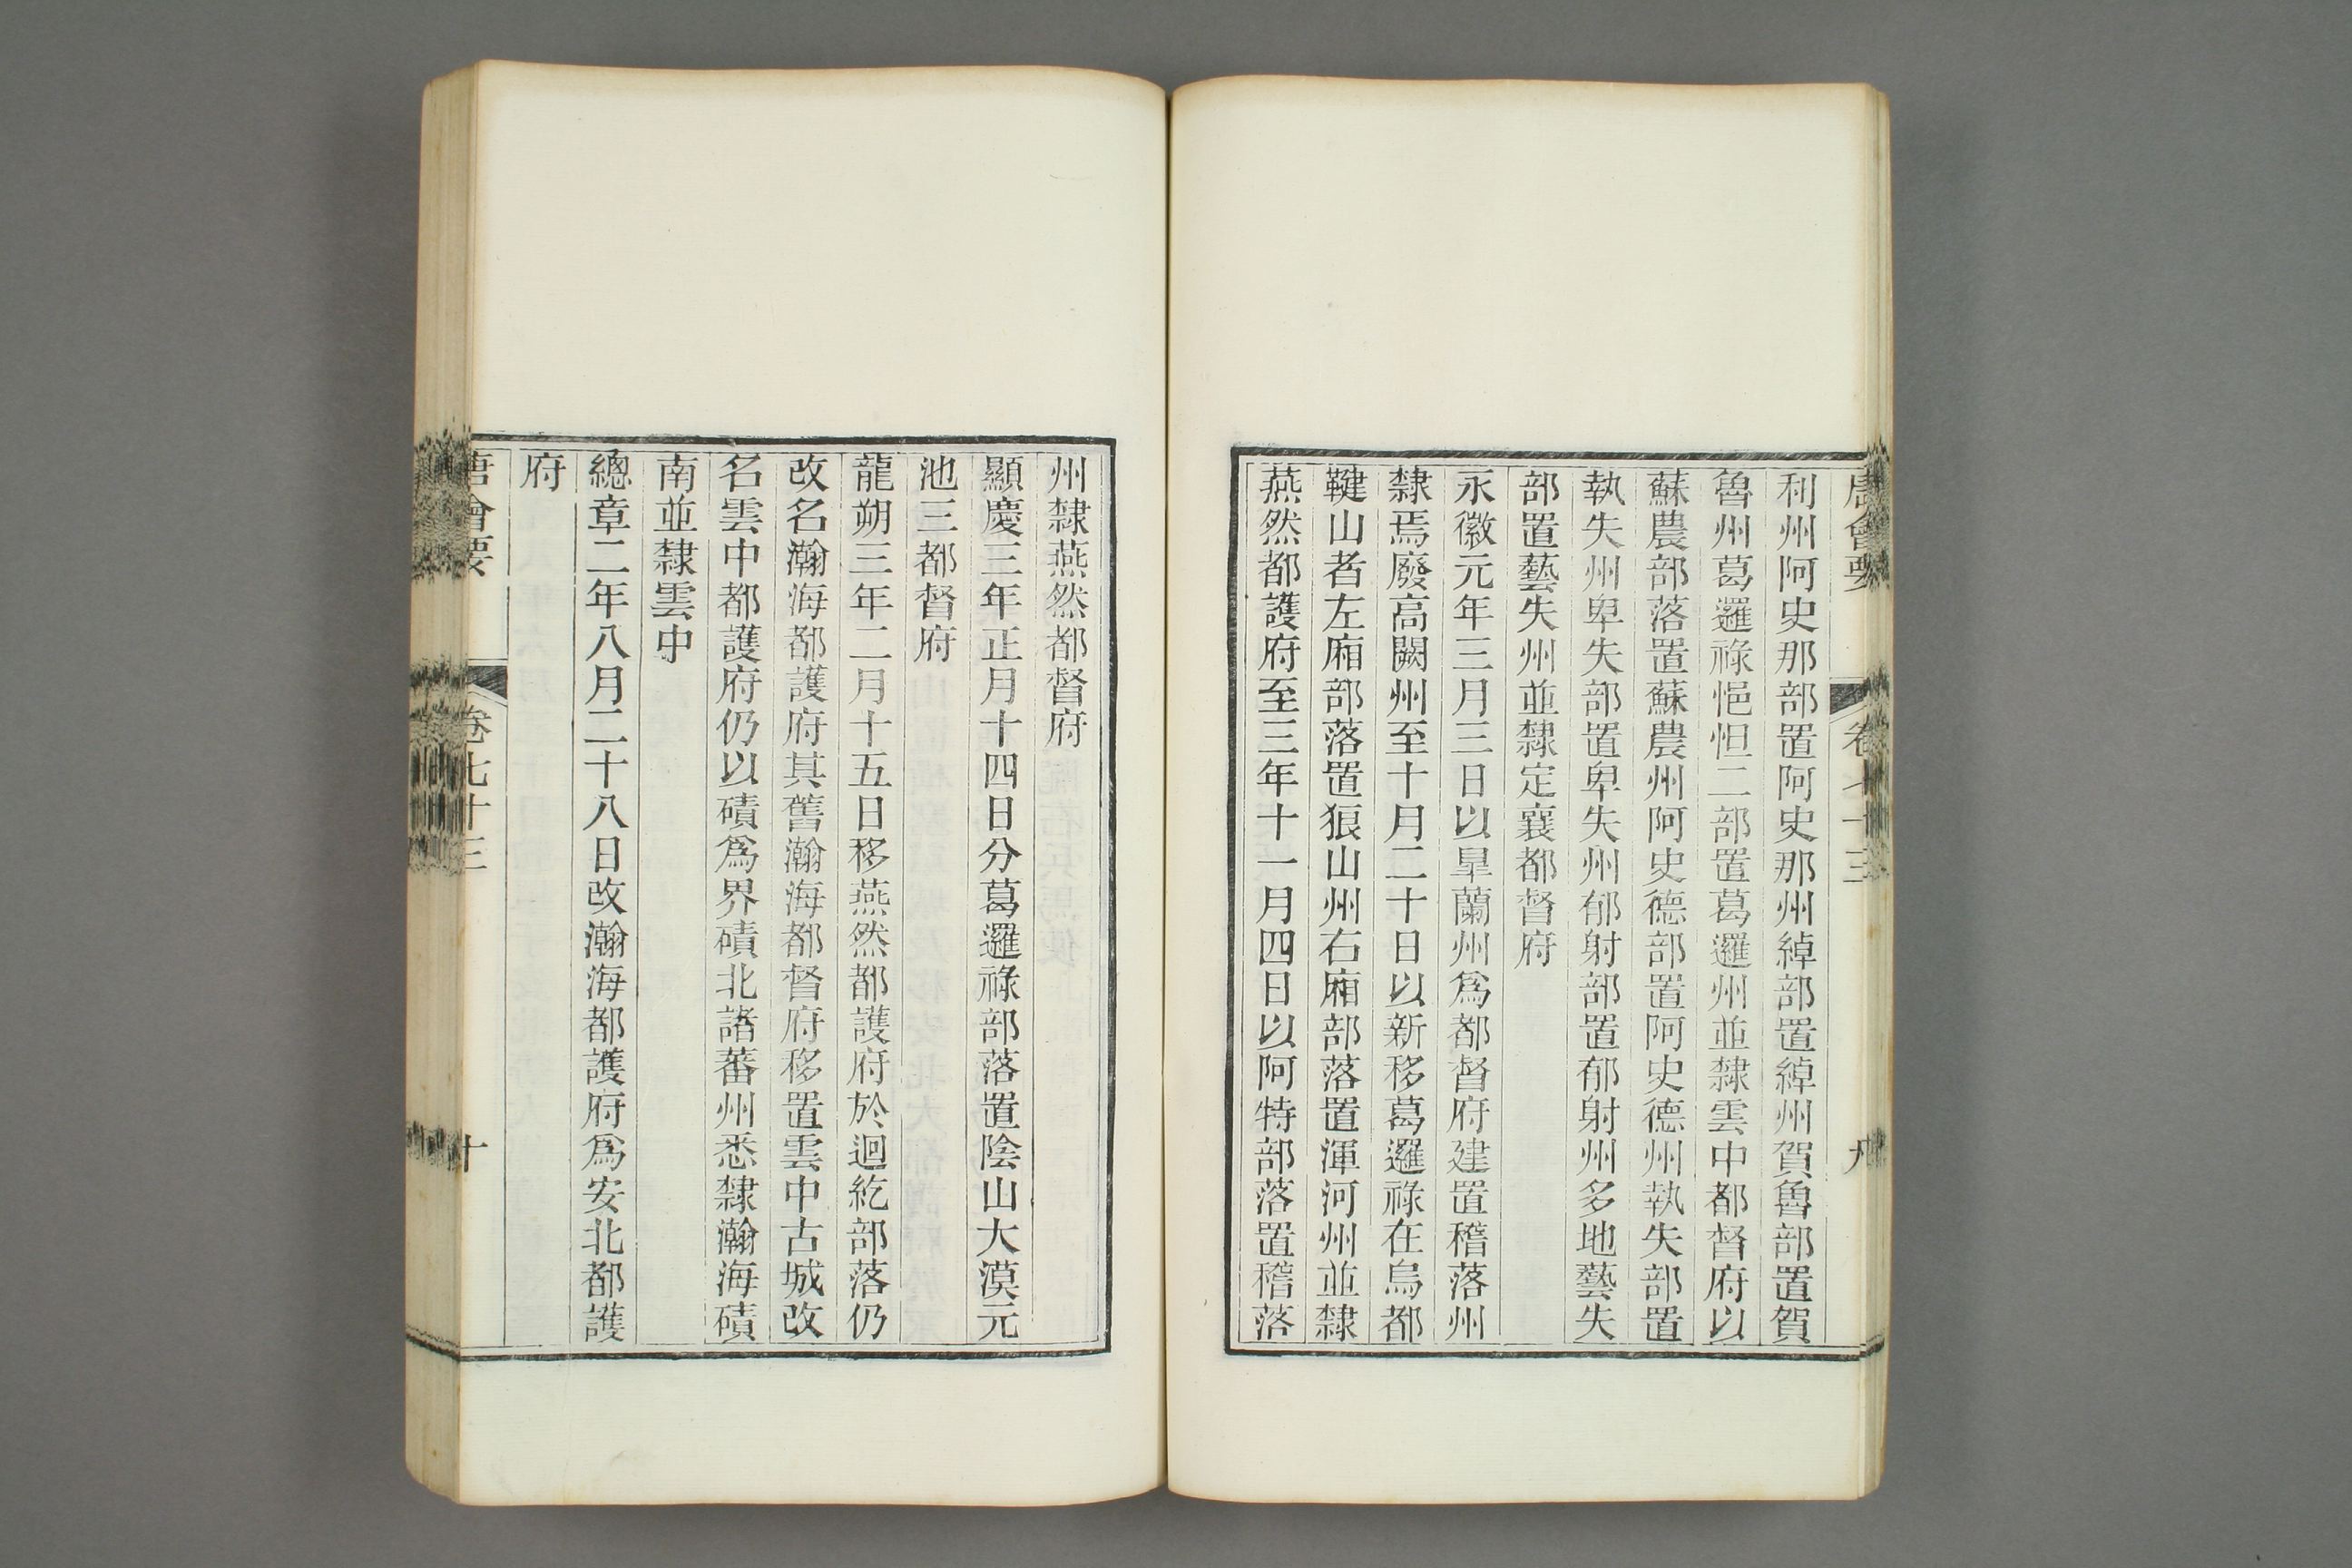 唐會要 卷七十三 九
利州阿史那部置阿史那州綽部置綽州賀魯部置賀
魯州葛邏祿悒怛二部置葛邏州並隸雲中都督府以
蘇農部落置蘇農州阿史德部置阿史德州執失部置
執失州卑失部置卑失州郁射部置郁射州多地藝失
部置藝失州並隸定襄都督府
永徽元年三月三日以臯蘭州爲都督府建置稽落州
隸焉廢高闕州至十月二十日以新移葛邏祿在烏都
鞬山者左廂部落置狼山州右廂部落置渾河州並隸
燕然都護府至三年十一月四日以阿特部落置稽落
州隸燕然都督府
顯慶三年正月十四日分葛邏祿部落置陰山大漠元
池三都督府
龍朔三年二月十五日移燕然都護府於迴紇部落仍
改名瀚海都護府其舊瀚海都督府移置雲中古城改
名雲中都護府仍以磧爲界磧北諸蕃州悉隸瀚海磧
南並隸雲中
總章二年八月二十八日改瀚海都護府爲安北都護
府
唐會要 卷七十三 十